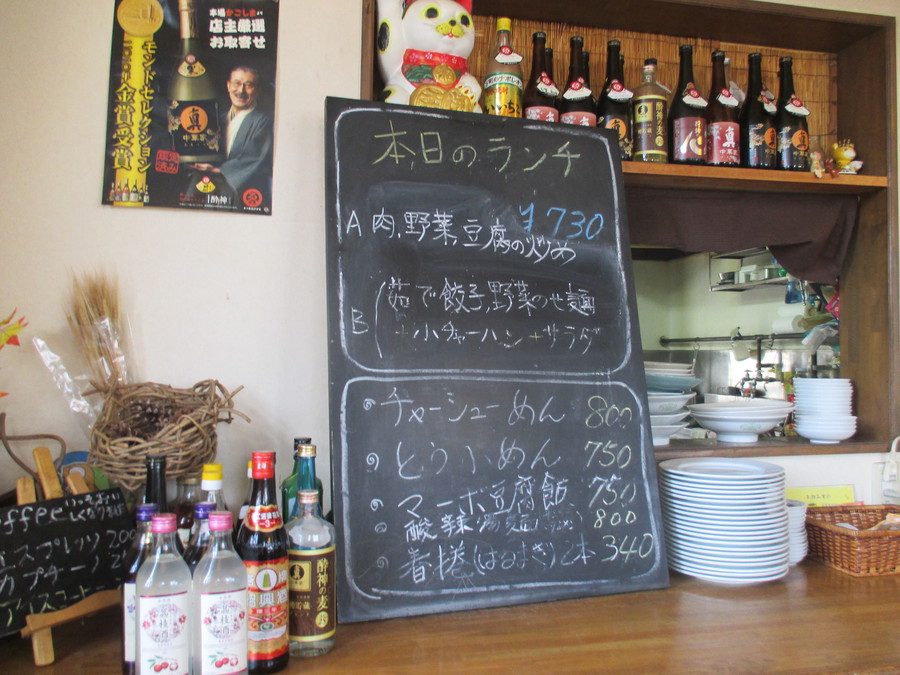 本場かごしま
店主厳選
お取寄せ
モンドセレクション
金賞受賞
真
「酔神」
本日のランチ
A 肉,野菜,豆腐の炒め ¥730
B 茹で餃子,野菜のせ麺
+小チャーハン+サラダ
チャーシューめん 800
とうふめん 750
マーボ豆腐飯 750
酸辣湯麺 800
春捲(はるまき)2本 340
酔神の麦
紹興酒
茘枝酒
coffee
エスプレッソ 200
カプチーノ
アイスコーヒー